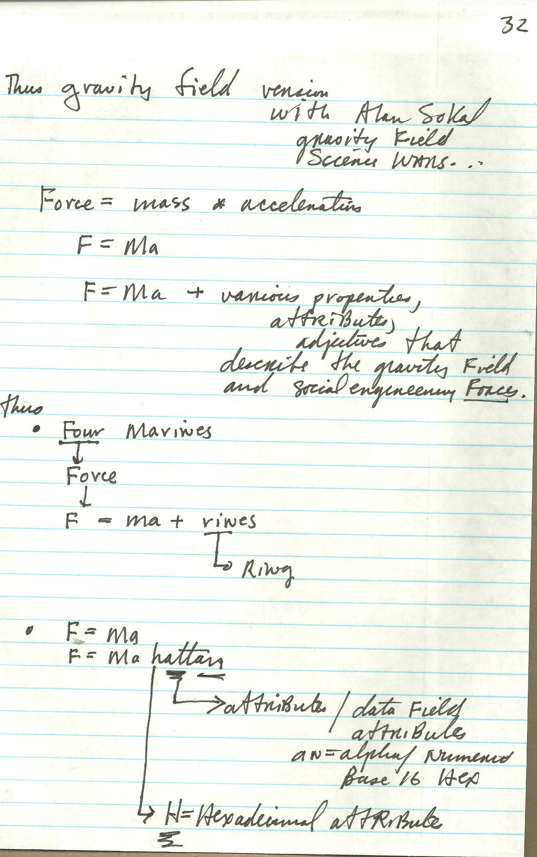 32
Thus gravity field version
with Alan Sokal
gravity Field
Science WARS...
Force = mass * acceleration
F = Ma
F = Ma + various properties,
attRiButes,
adjectives that
describe the gravity Field
and social engineering Forces.
thus
• Four Marines
Force
F = ma + rines
Ring
• F = Ma
F = Ma hattan
attRiButes / data Field
attRiButes
an = alpha/ Numeric
Base 16 Hex
H = Hexadecimal attRiButes